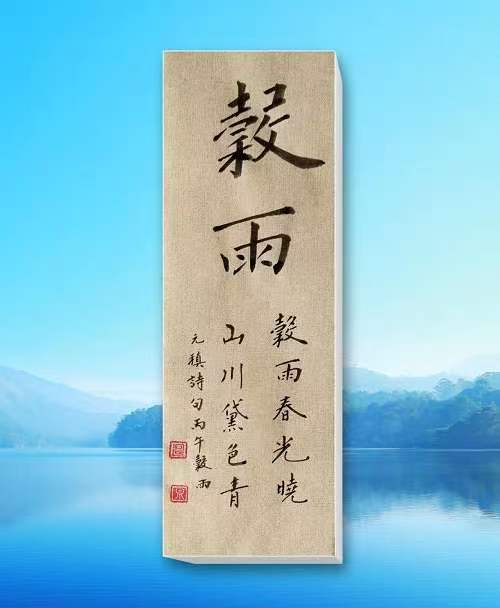 穀雨
穀雨春光曉
山川黛色青
元稹詩句丙午穀雨